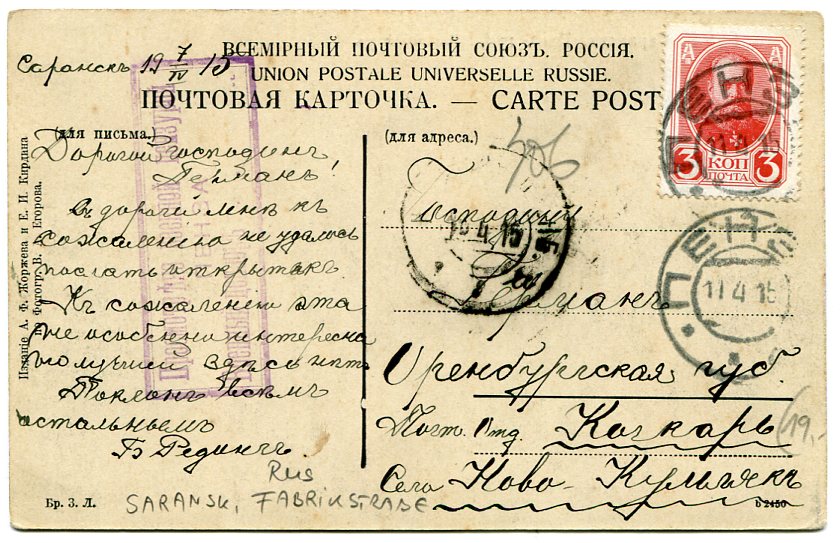 ВСЕМІРНЫЙ ПОЧТОВЫЙ СОЮЗЪ. РОССІЯ.
UNION POSTALE UNIVERSELLE RUSSIE.
ПОЧТОВАЯ КАРТОЧКА. — CARTE POST
Саранскъ 19 7/IV 15
(для письма.)
Дорогой господинъ
Германъ!
Въ дорогѣ мнѣ къ
сожаленію не удалось
послать открытокъ.
Къ сожаленію эта
не особенно интересна
но лучшей здѣсь нѣтъ
Поклонъ всѣмъ
остальнымъ
Б Рединъ
(для адреса.)
306
Господину
Герману
Оренбургская губ.
Почт. Отд. Кочкарь
Село Ново-Кумлякъ
19,-
3 КОП 3
ПОЧТА
ПЕНЗА
11 4 15
ПЕНЗА
11 4 15
4 15
Изданіе А. Ф. Жоржева и Е. И. Кирдина
Фотогр. В. Егорова.
Rus
SARANSK, FABRIKSTRAßE
Бр. З. Л.
b 2450